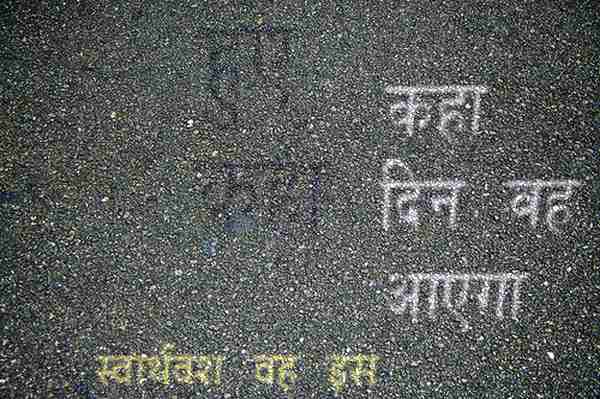 कहा
दिन वह
आएगा
स्वार्थवश वह इस